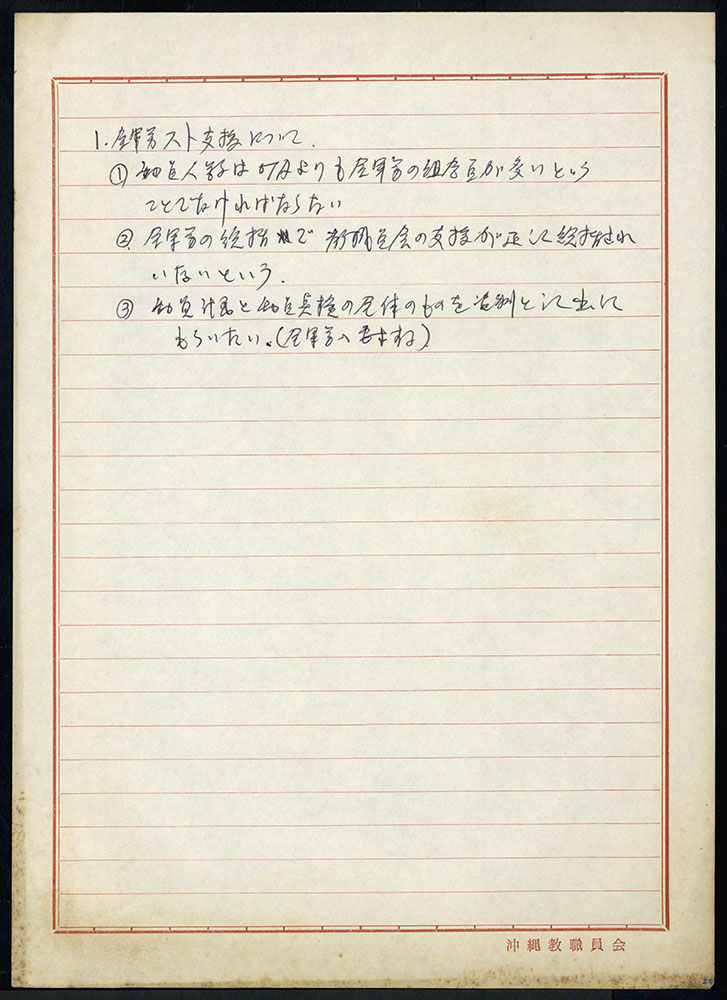 1. 全軍労スト支援について.
① 動員人数は よりも全軍労の組合員が多いという
ことでなければならない
② 全軍労の総括 で 教職員会の支援が正しく総括され
いないという.
③ 動員計画と動員点検の全体のものを資料として出して
もらいたい。(全軍労へ要する)
沖縄教職員会